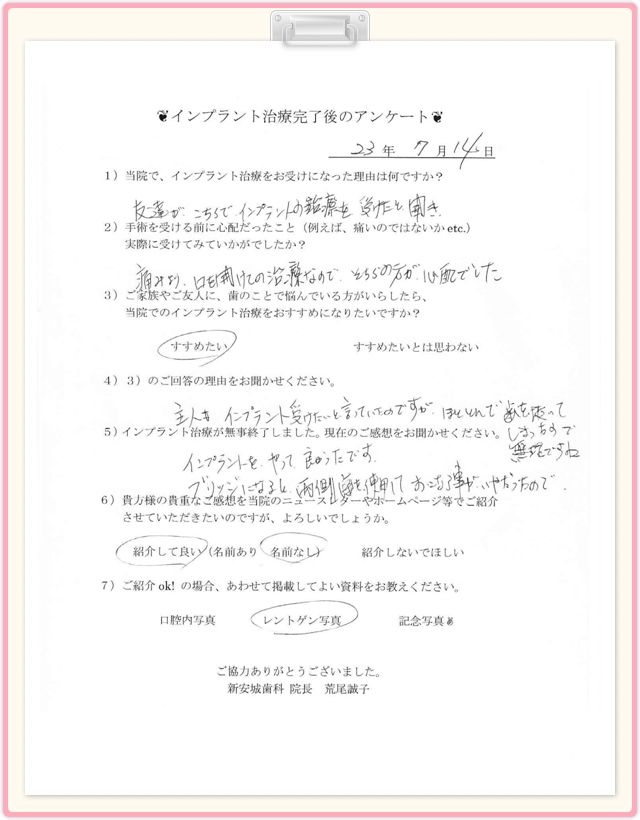 ❦インプラント治療完了後のアンケート❦
23 年 7 月 14 日
1）当院で、インプラント治療をお受けになった理由は何ですか？
友達が、こちらでインプラントの診療を受けたと聞き
2）手術を受ける前に心配だったこと（例えば、痛いのではないか etc.）
実際に受けてみていかがでしたか？
痛みより、口を開けての治療なので、そちらの方が心配でした
3）ご家族やご友人に、歯のことで悩んでいる方がいらしたら、
当院でのインプラント治療をおすすめになりたいですか？
すすめたい すすめたいとは思わない
4）３）のご回答の理由をお聞かせください。
主人も インプラント受けたいと言っていたのですが、ほとんどで歯を
しまっちので
無理ですね
5）インプラント治療が無事終了しました。現在のご感想をお聞かせください。
インプラントを、やって良かったです。
ブリッジになると、両側歯を使用して おこなう事が いやだったので、
6）貴方様の貴重なご感想を当院のニュースレターやホームページ等でご紹介
させていただきたいのですが、よろしいでしょうか。
紹介して良い（名前あり 名前なし） 紹介しないでほしい
7）ご紹介 ok! の場合、あわせて掲載してよい資料をお教えください。
口腔内写真 レントゲン写真 記念写真
ご協力ありがとうございました。
新安城歯科 院長 荒尾誠子